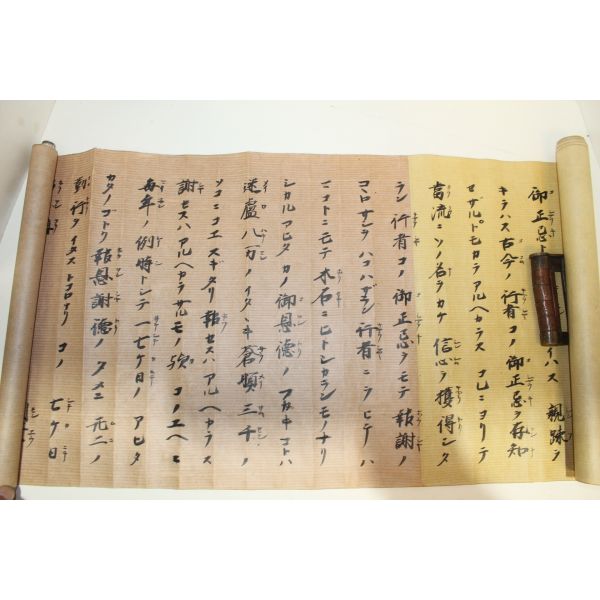 御正忌ト イハス 親疎ヲ
キラハス古今ノ行者コノ御正忌ヲ存知
セザルトモカラアルヘカラス コレニヨリテ
當流ニソノ名ヲカケ 信心ヲ獲得シタ
ラン行者コノ御正忌ヲモテ報謝ノ
コヽロザシヲハコハザラン行者ニヲヒテハ
マコトニモテ木石ニヒトシカランモノナリ
シカルアヒタカノ御恩徳ノフカキコトハ
迷盧八万ノイタヽキ蒼溟三千ノ
ソコニコエスギタリ報セスハアルヘカラス
謝セスハアルヘカラサルモノ歟 コノユヘニ
毎年ノ例時トシテ一七ケ日ノアヒタ
カタノコトク報恩謝徳ノタメニ 无二ノ
勤行ヲイタストコロナリ コノ
七ケ日